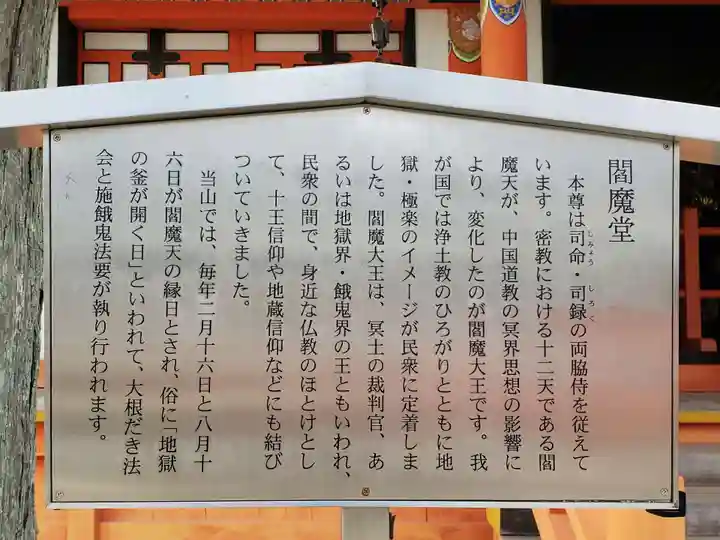 閻魔堂
本尊は司命・司録の両脇侍を従えて
しみょう
しろく
います。密教における十二天である閻
魔天が、中国道教の冥界思想の影響に
より、変化したのが閻魔大王です。我
が国では浄土教のひろがりとともに地
獄・極楽のイメージが民衆に定着しま
した。閻魔大王は、冥土の裁判官、あ
るいは地獄界・餓鬼界の王ともいわれ、
民衆の間で、身近な仏教のほとけとし
て、十王信仰や地蔵信仰などにも結び
ついていきました。
当山では、毎年二月十六日と八月十
六日が閻魔天の縁日とされ、俗に「地獄
の釜が開く日」といわれて、大根だき法
会と施餓鬼法要が執り行われます。